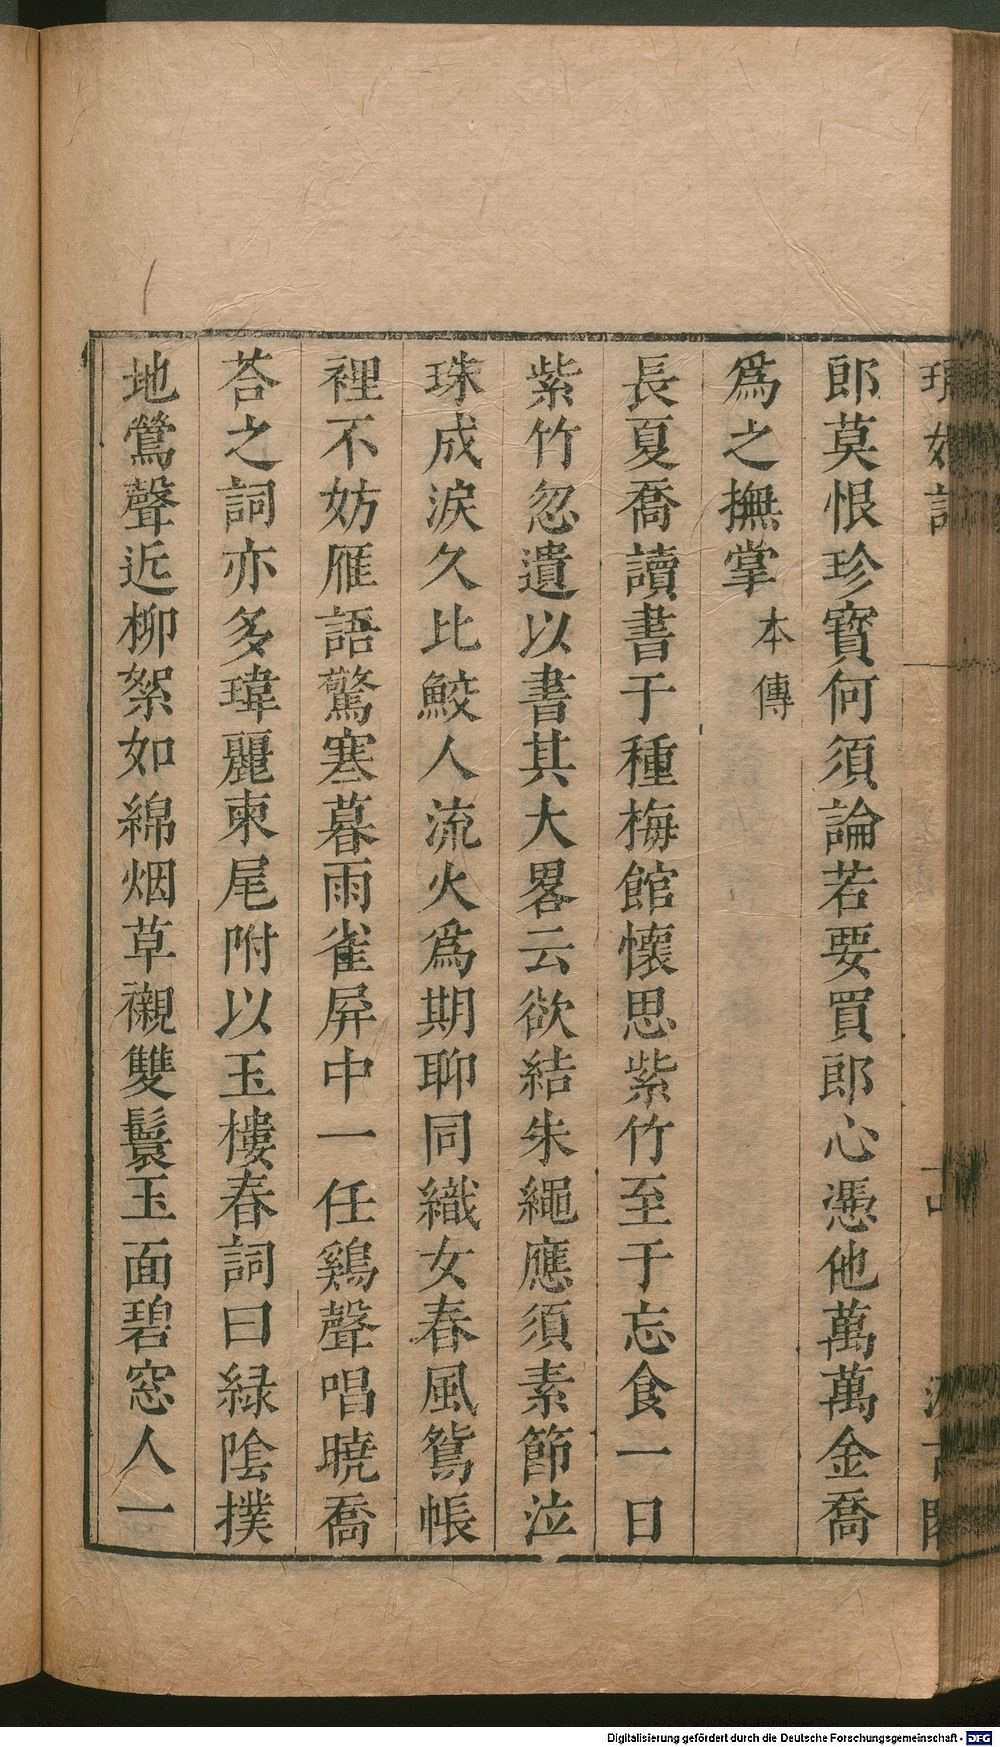 郎莫恨珍寶何須論若要買郎心憑他萬萬金喬
爲之撫掌本傳
長夏喬讀書于種梅館懷思紫竹至于忘食一日
紫竹忽遺以書其大畧云欲結朱繩應須素節泣
珠成淚久比鮫人流火爲期聊同織女春風鴛帳
裡不妨雁語驚寒暮雨雀屏中一任鷄聲唱曉喬
荅之詞亦多瑋麗柬尾附以玉樓春詞曰緑陰撲
地鶯聲近柳絮如綿烟草襯雙鬟玉面碧窓人一
Digitalisierung gefördert durch die Deutsche Forschungsgemeinschaft - DFG